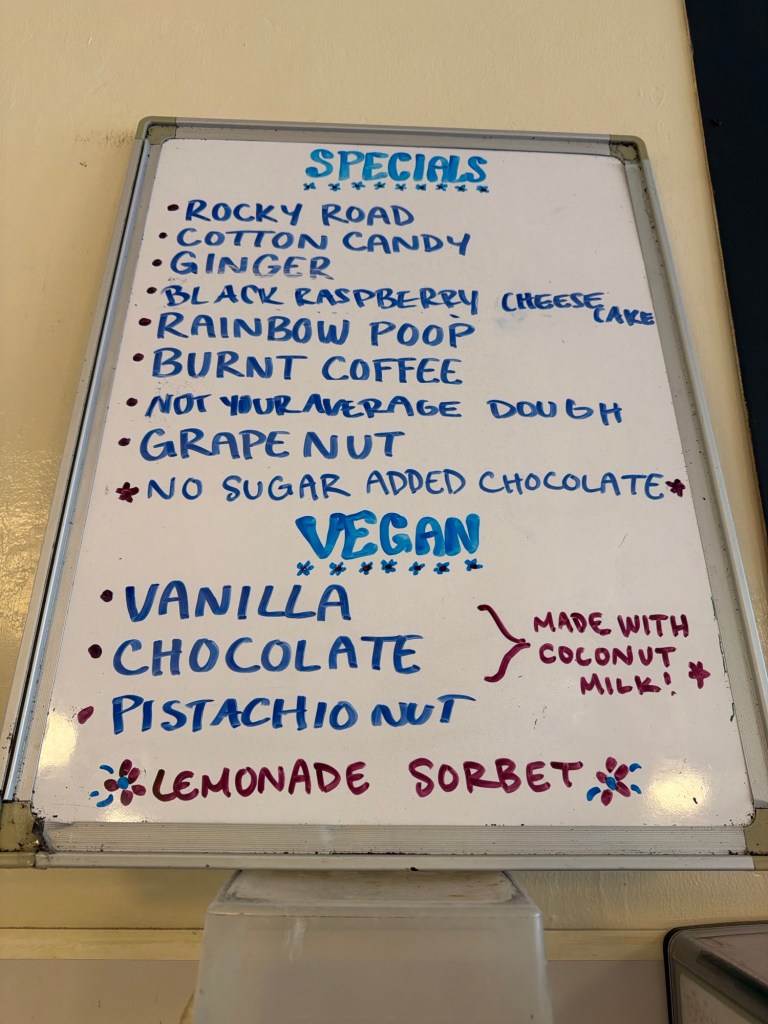 SPECIALS
• ROCKY ROAD
• COTTON CANDY
• GINGER
• BLACK RASPBERRY CHEESE CAKE
• RAINBOW POOP
• BURNT COFFEE
• NOT YOUR AVERAGE DOUGH
• GRAPE NUT
* NO SUGAR ADDED CHOCOLATE *
VEGAN
• VANILLA
• CHOCOLATE
MADE WITH
COCONUT
MILK!
• PISTACHIO NUT
LEMONADE SORBET